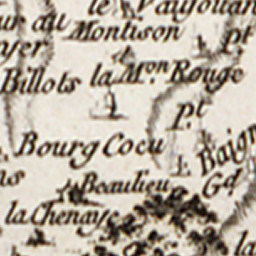 le Vaujouan
ur au Montison
pt
yer
Billots la Mon Rouge
pt
Bourg Cocu
Baign
ns
Beaulieu
Gd
la Chenaye
la